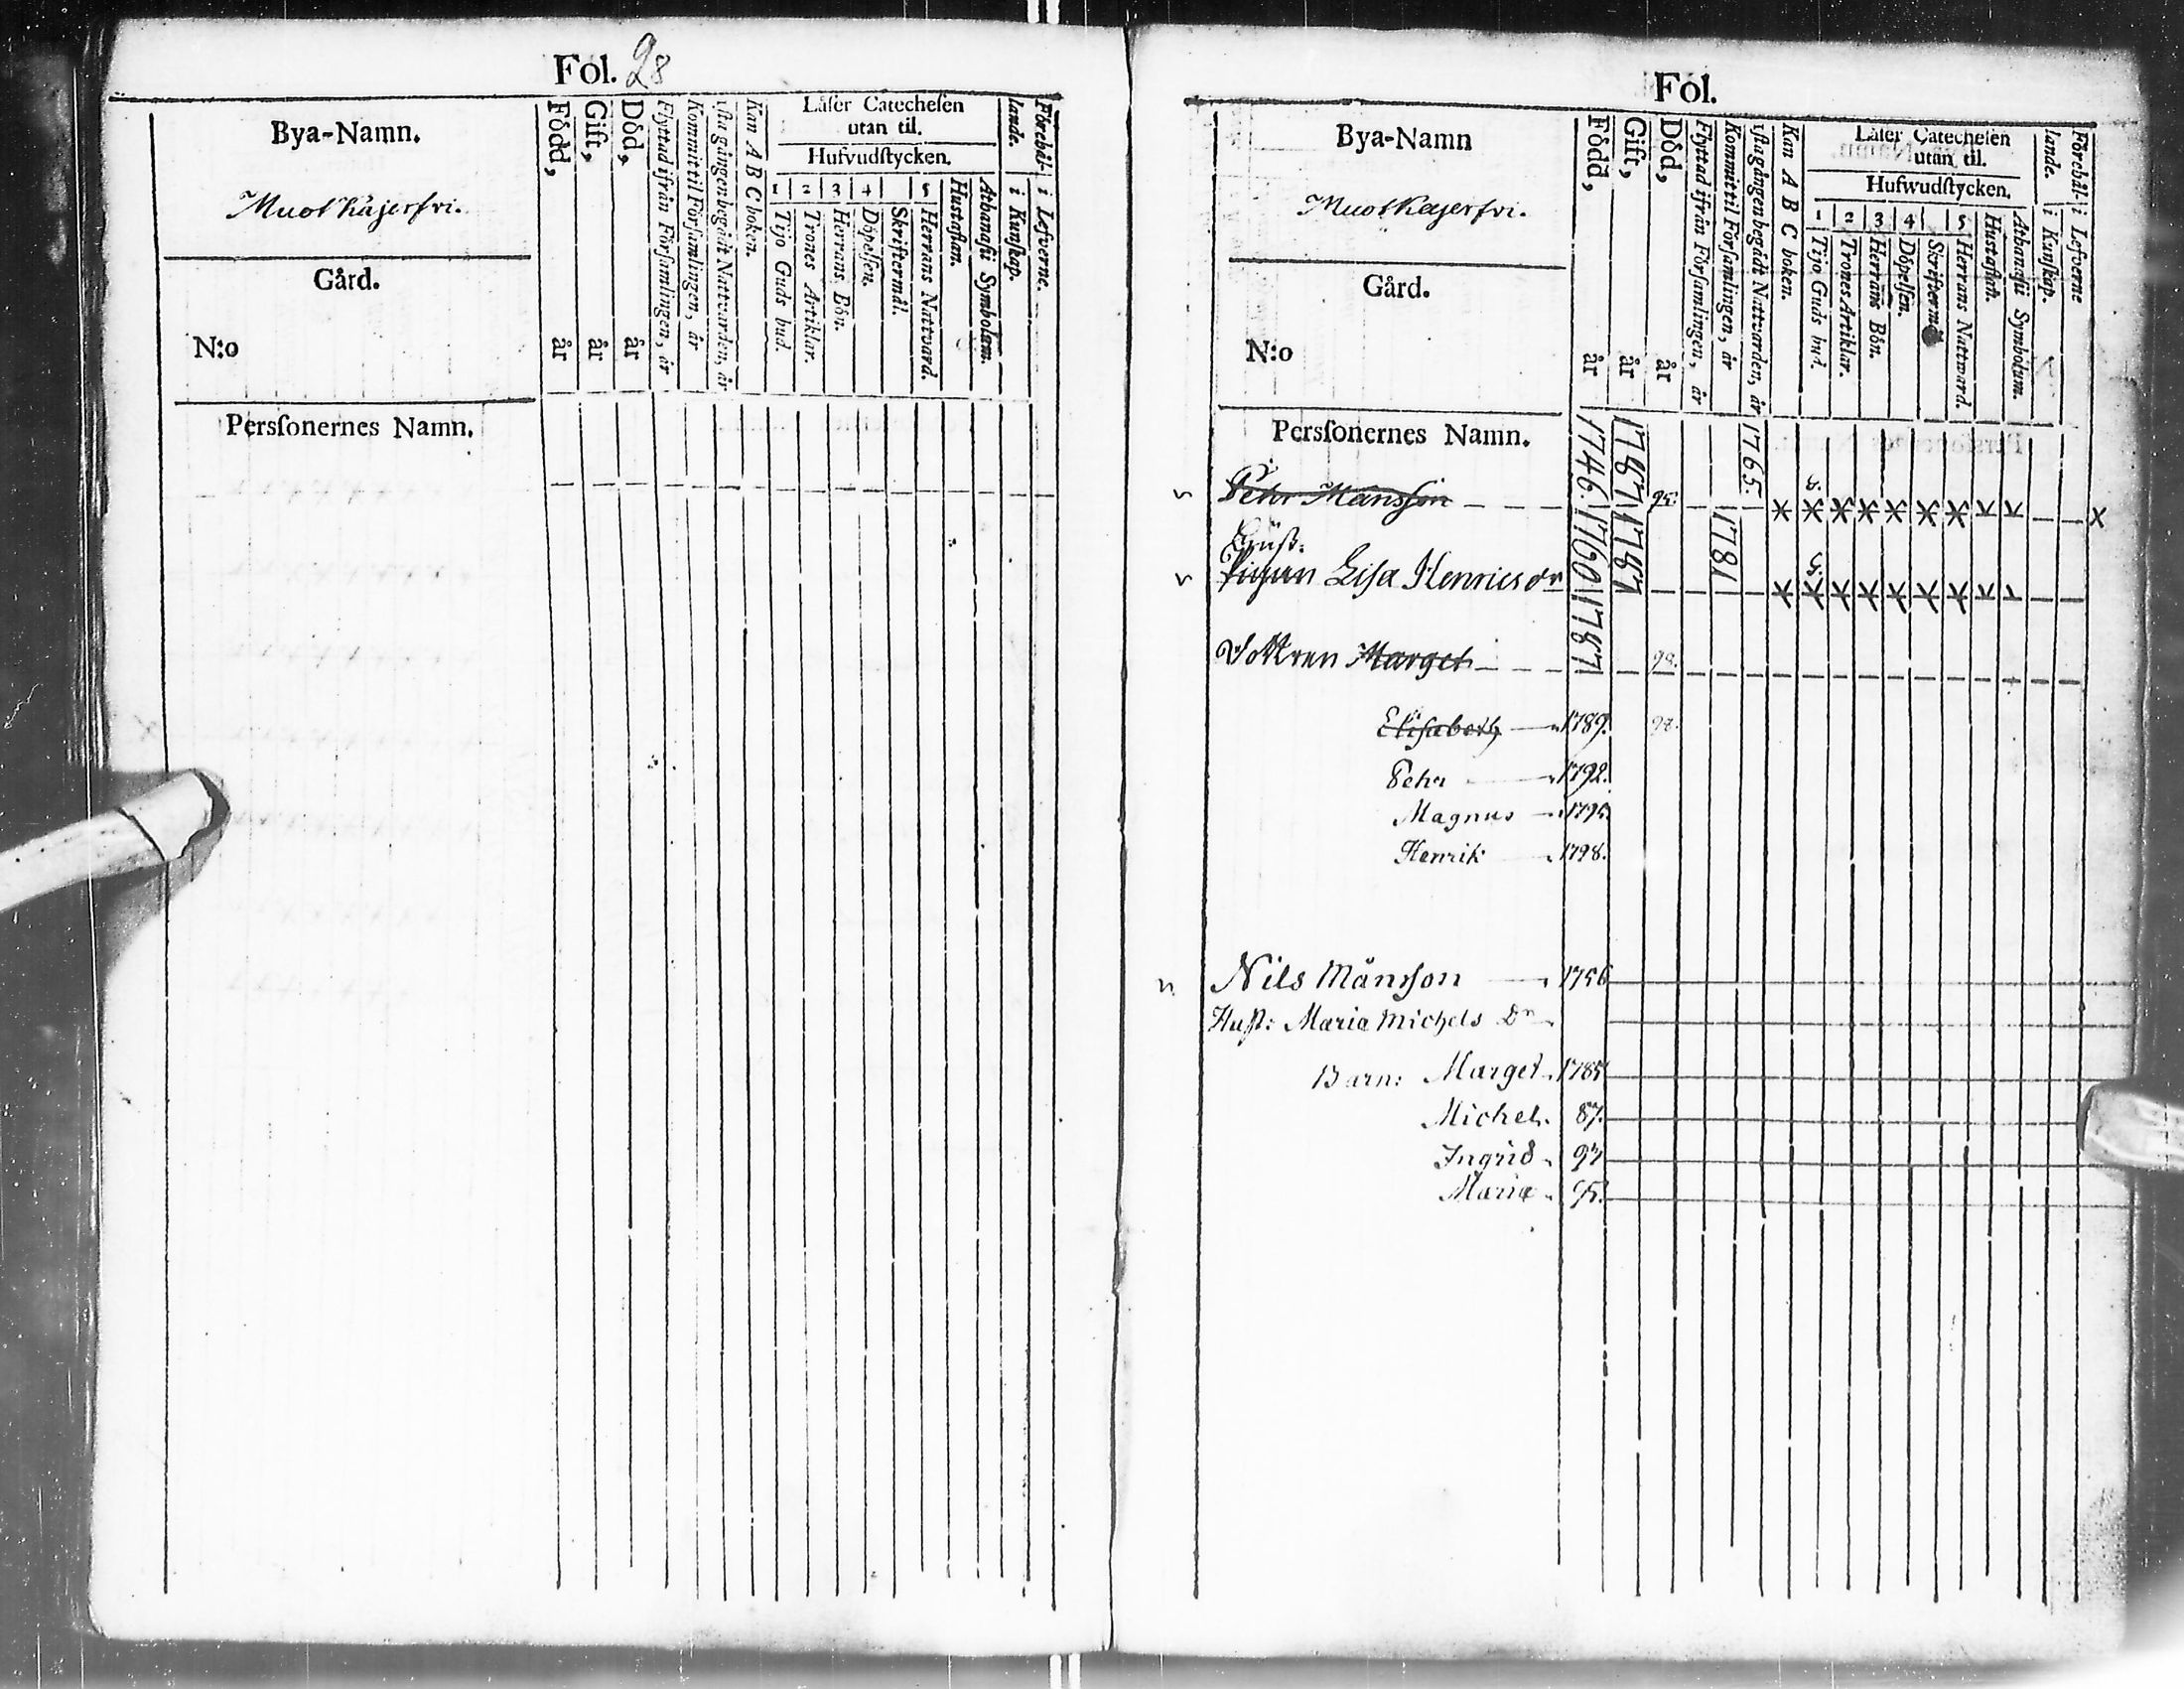 Fol. 28
Bya-Namn.
Muotkajerfvi.
Gård.
N:o
Perssonernes Namn.
Född, år
Gift, år
Död, år
Flyttad ifrån Församlingen, år
Kommit til Församlingen, år
gången begådt Nattvarden, år
Kan A B C boken.
Läser Catechesen
utan til.
Hufvudstycken.
1 2 3 4 5
Tijo Guds bud.
Trones Artiklar.
Herrans Bön.
Döpelsen.
Skriftermål.
Herrans Nattvard.
Hustaflan.
Athanasii Symbolum.
Förehål-
lande.
i Kunskap.
i Lefverne.
Fol.
Bya-Namn
Muotkajerfvi.
Gård.
N:o
Perssonernes Namn.
Född, år
Gift, år
Död, år
Flyttad ifrån Församlingen, år
Kommit til Församlingen, år
gången begådt Nattvarden, år
Kan A B C boken.
Läser Catechesen
utan til.
Hufwudstycken.
1 2 3 4 5
Tijo Guds bud.
Trones Artiklar.
Herrans Bön.
Döpelsen.
Skriftermål
Herrans Nattward.
Hustaflan.
Athanasii Symbolum.
Förehål-
lande.
i Kunskap.
i Lefverne
Pehr Månsson 1746 1787 95. 1765.
Hust:
Pigan Lisa Henricsdr 1760 1787 1781
Dottren Marget 1787 98.
Elisabeth 1789.
Pehr 1792.
Magnus 1795.
Henrik 1798.
Nils Månsson 1756
Hust: Maria Michels Dr
Barn: Marget 1785
Michel. 87.
Ingrid 93
Maria 95.